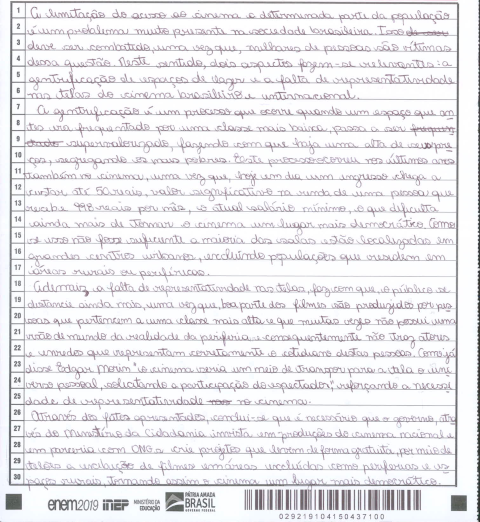 1 A limitação do acesso ao cinema a determinada parte da população
2 é um problema muito presente na sociedade brasileira. Isso
3 deve ser combatido, uma vez que, milhares de pessoas são vítimas
4 dessa questão. Neste sentido, dois aspectos fazem-se relevantes: a
5 gentrificação de espaços de lazer e a falta de representatividade
6 nas telas do cinema brasileiro e internacional.
7 A gentrificação é um processo que ocorre quando um espaço que an-
8 tes era frequentado por uma classe mais baixa, passa a ser
9 supervalorizado, fazendo com que haja uma alta de
10 ços, segregando os mais pobres. Este processo ocorreu nos últimos anos
11 também no cinema, uma vez que, hoje em dia um ingresso chega a
12 custar até 50 reais, valor significativo na renda de uma pessoa que
13 recebe 998 reais por mês, o atual salário mínimo, o que dificulta
14 ainda mais de tornar o cinema um lugar mais democrático. Como
15 se isso não fosse suficiente a maioria das salas estão localizadas em
16 grandes centros urbanos, excluindo populações que residem em
17 áreas rurais ou periféricas.
18 Ademais, a falta de representatividade nas telas, faz com que, o público se
19 distancie ainda mais, uma vez que, boa parte dos filmes são produzidos por pes-
20 soas que pertencem a uma classe mais alta e que muitas vezes não possui uma
21 visão de mundo da realidade da periferia e consequentemente não traz atores
22 e enredos que representam corretamente o cotidiano destas pessoas. Como já
23 disse Edgar Morin "o cinema seria um meio de transpor para a tela o uni-
24 verso pessoal, solicitando a participação do espectador", reforçando a necessi-
25 dade de representatividade no cinema.
26 Através dos fatos apresentados, conclui-se que é necessário que o governo, atra-
27 vés do Ministério da Cidadania invista em produções do cinema nacional e
28 em parceria com ONGs crie projetos que levem de forma gratuita, por meio de
29 telões a exibição de filmes em áreas excluídas como periferias e es-
30 paços rurais, tornando assim o cinema um lugar mais democrático.
enem2019 inep MINISTÉRIO DA EDUCAÇÃO PÁTRIA AMADA BRASIL GOVERNO FEDERAL
029219104150437100